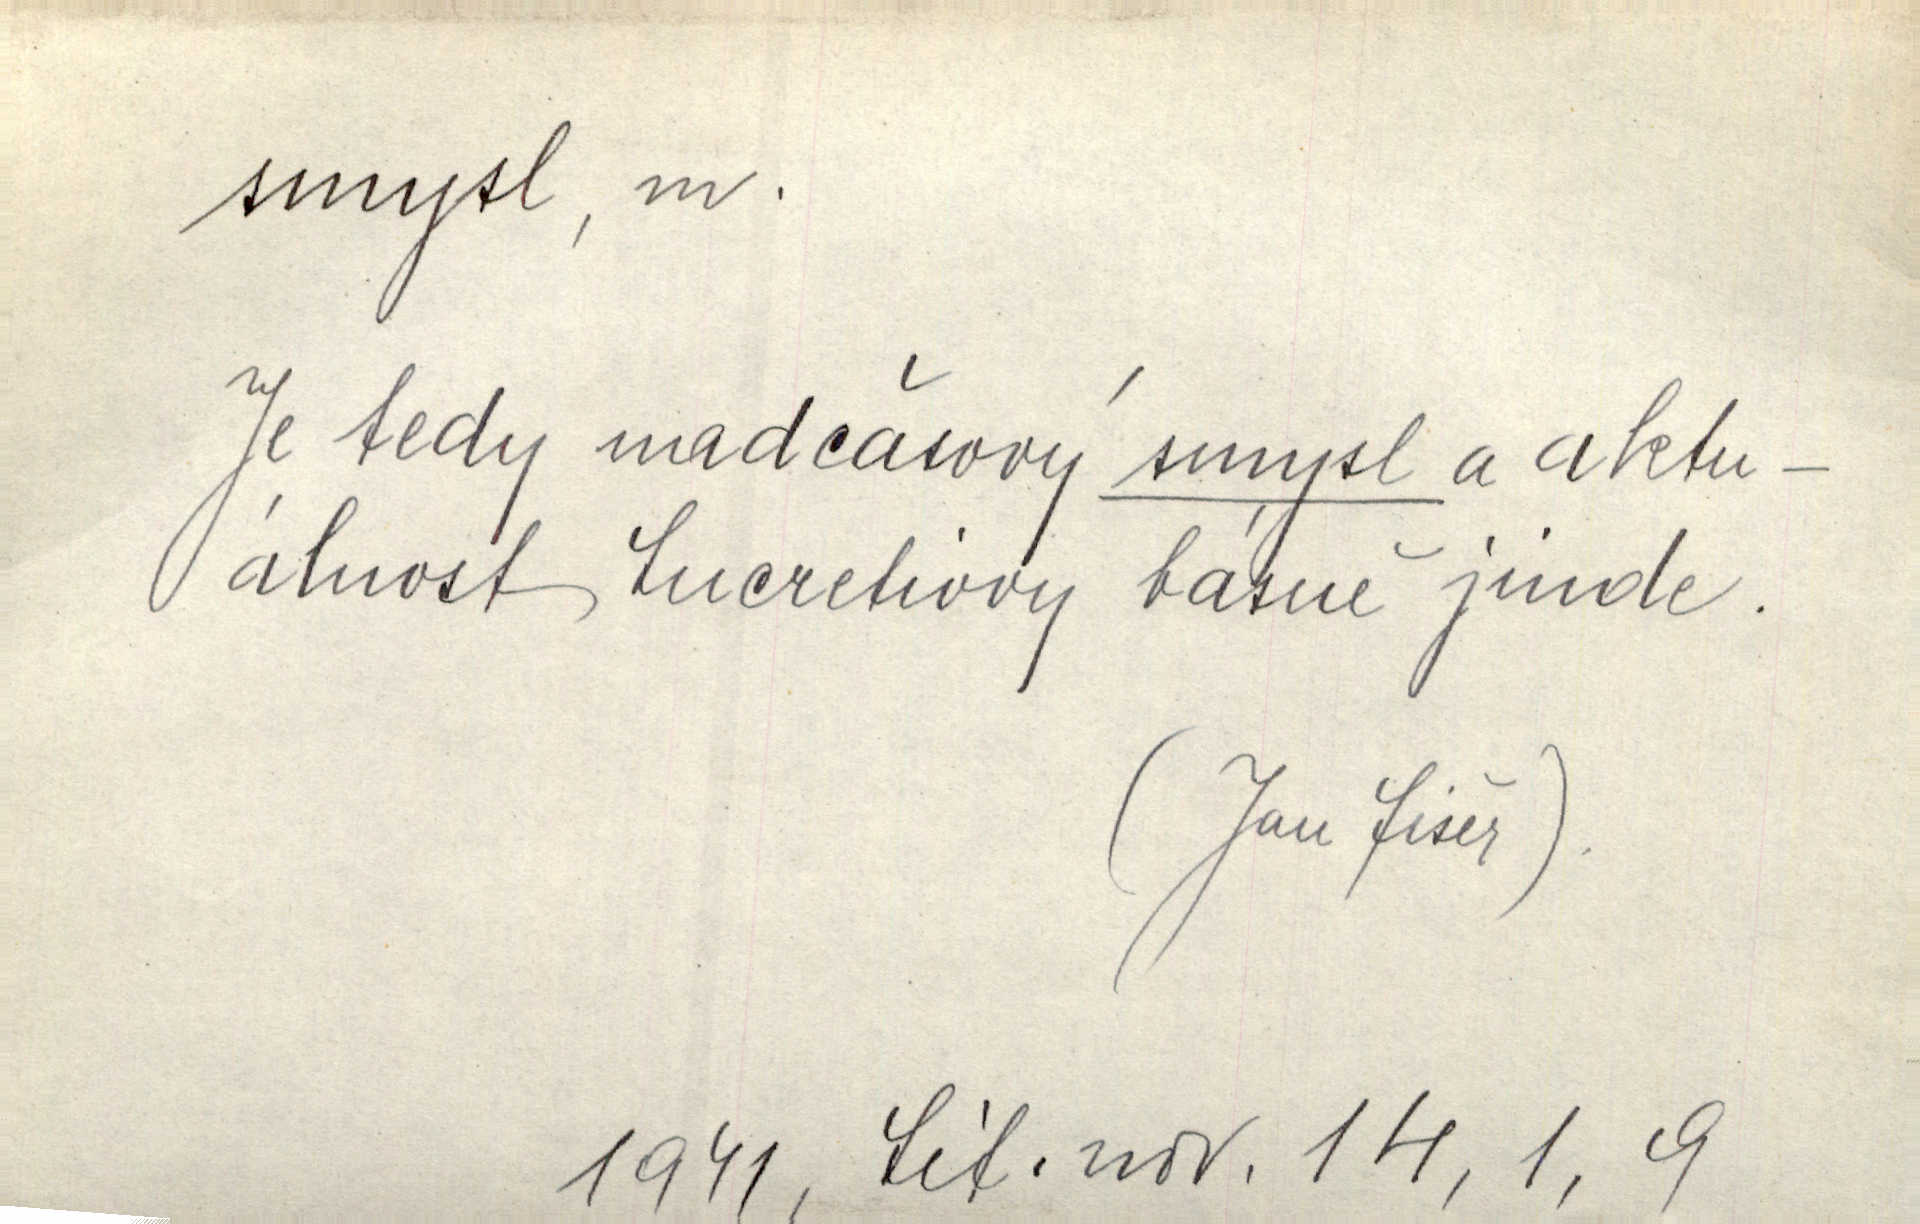 smysl, m.
Je tedy nadčasový smysl a aktu-
álnost Lucretiovy básně jinde.
(Jan Fišer).
1941, Lit. nov. 14, 1, 9